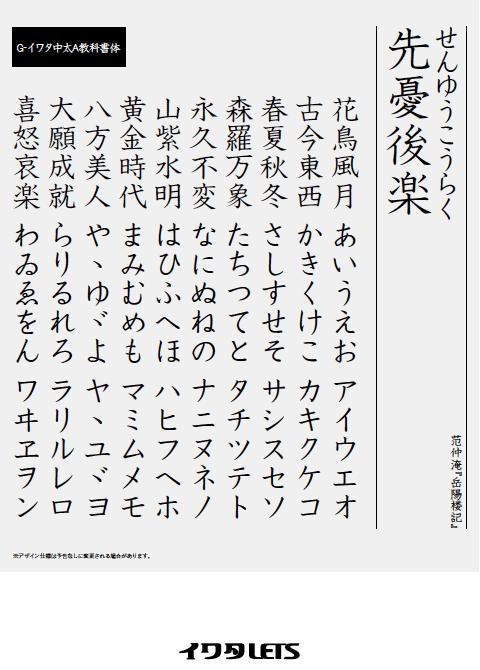 G-イワタ中太A教科書体
せんゆうこうらく
先憂後楽
范仲淹『岳陽楼記』
花鳥風月
古今東西
春夏秋冬
森羅万象
永久不変
山紫水明
黄金時代
八方美人
大願成就
喜怒哀楽
あいうえお
かきくけこ
さしすせそ
たちつてと
なにぬねの
はひふへほ
まみむめも
やヽゆヾよ
らりるれろ
わゐゑをん
アイウエオ
カキクケコ
サシスセソ
タチツテト
ナニヌネノ
ハヒフヘホ
マミムメモ
ヤヽユヾヨ
ラリルレロ
ワヰヱヲン
※デザイン仕様は予告なしに変更される場合があります。
イワタLETS